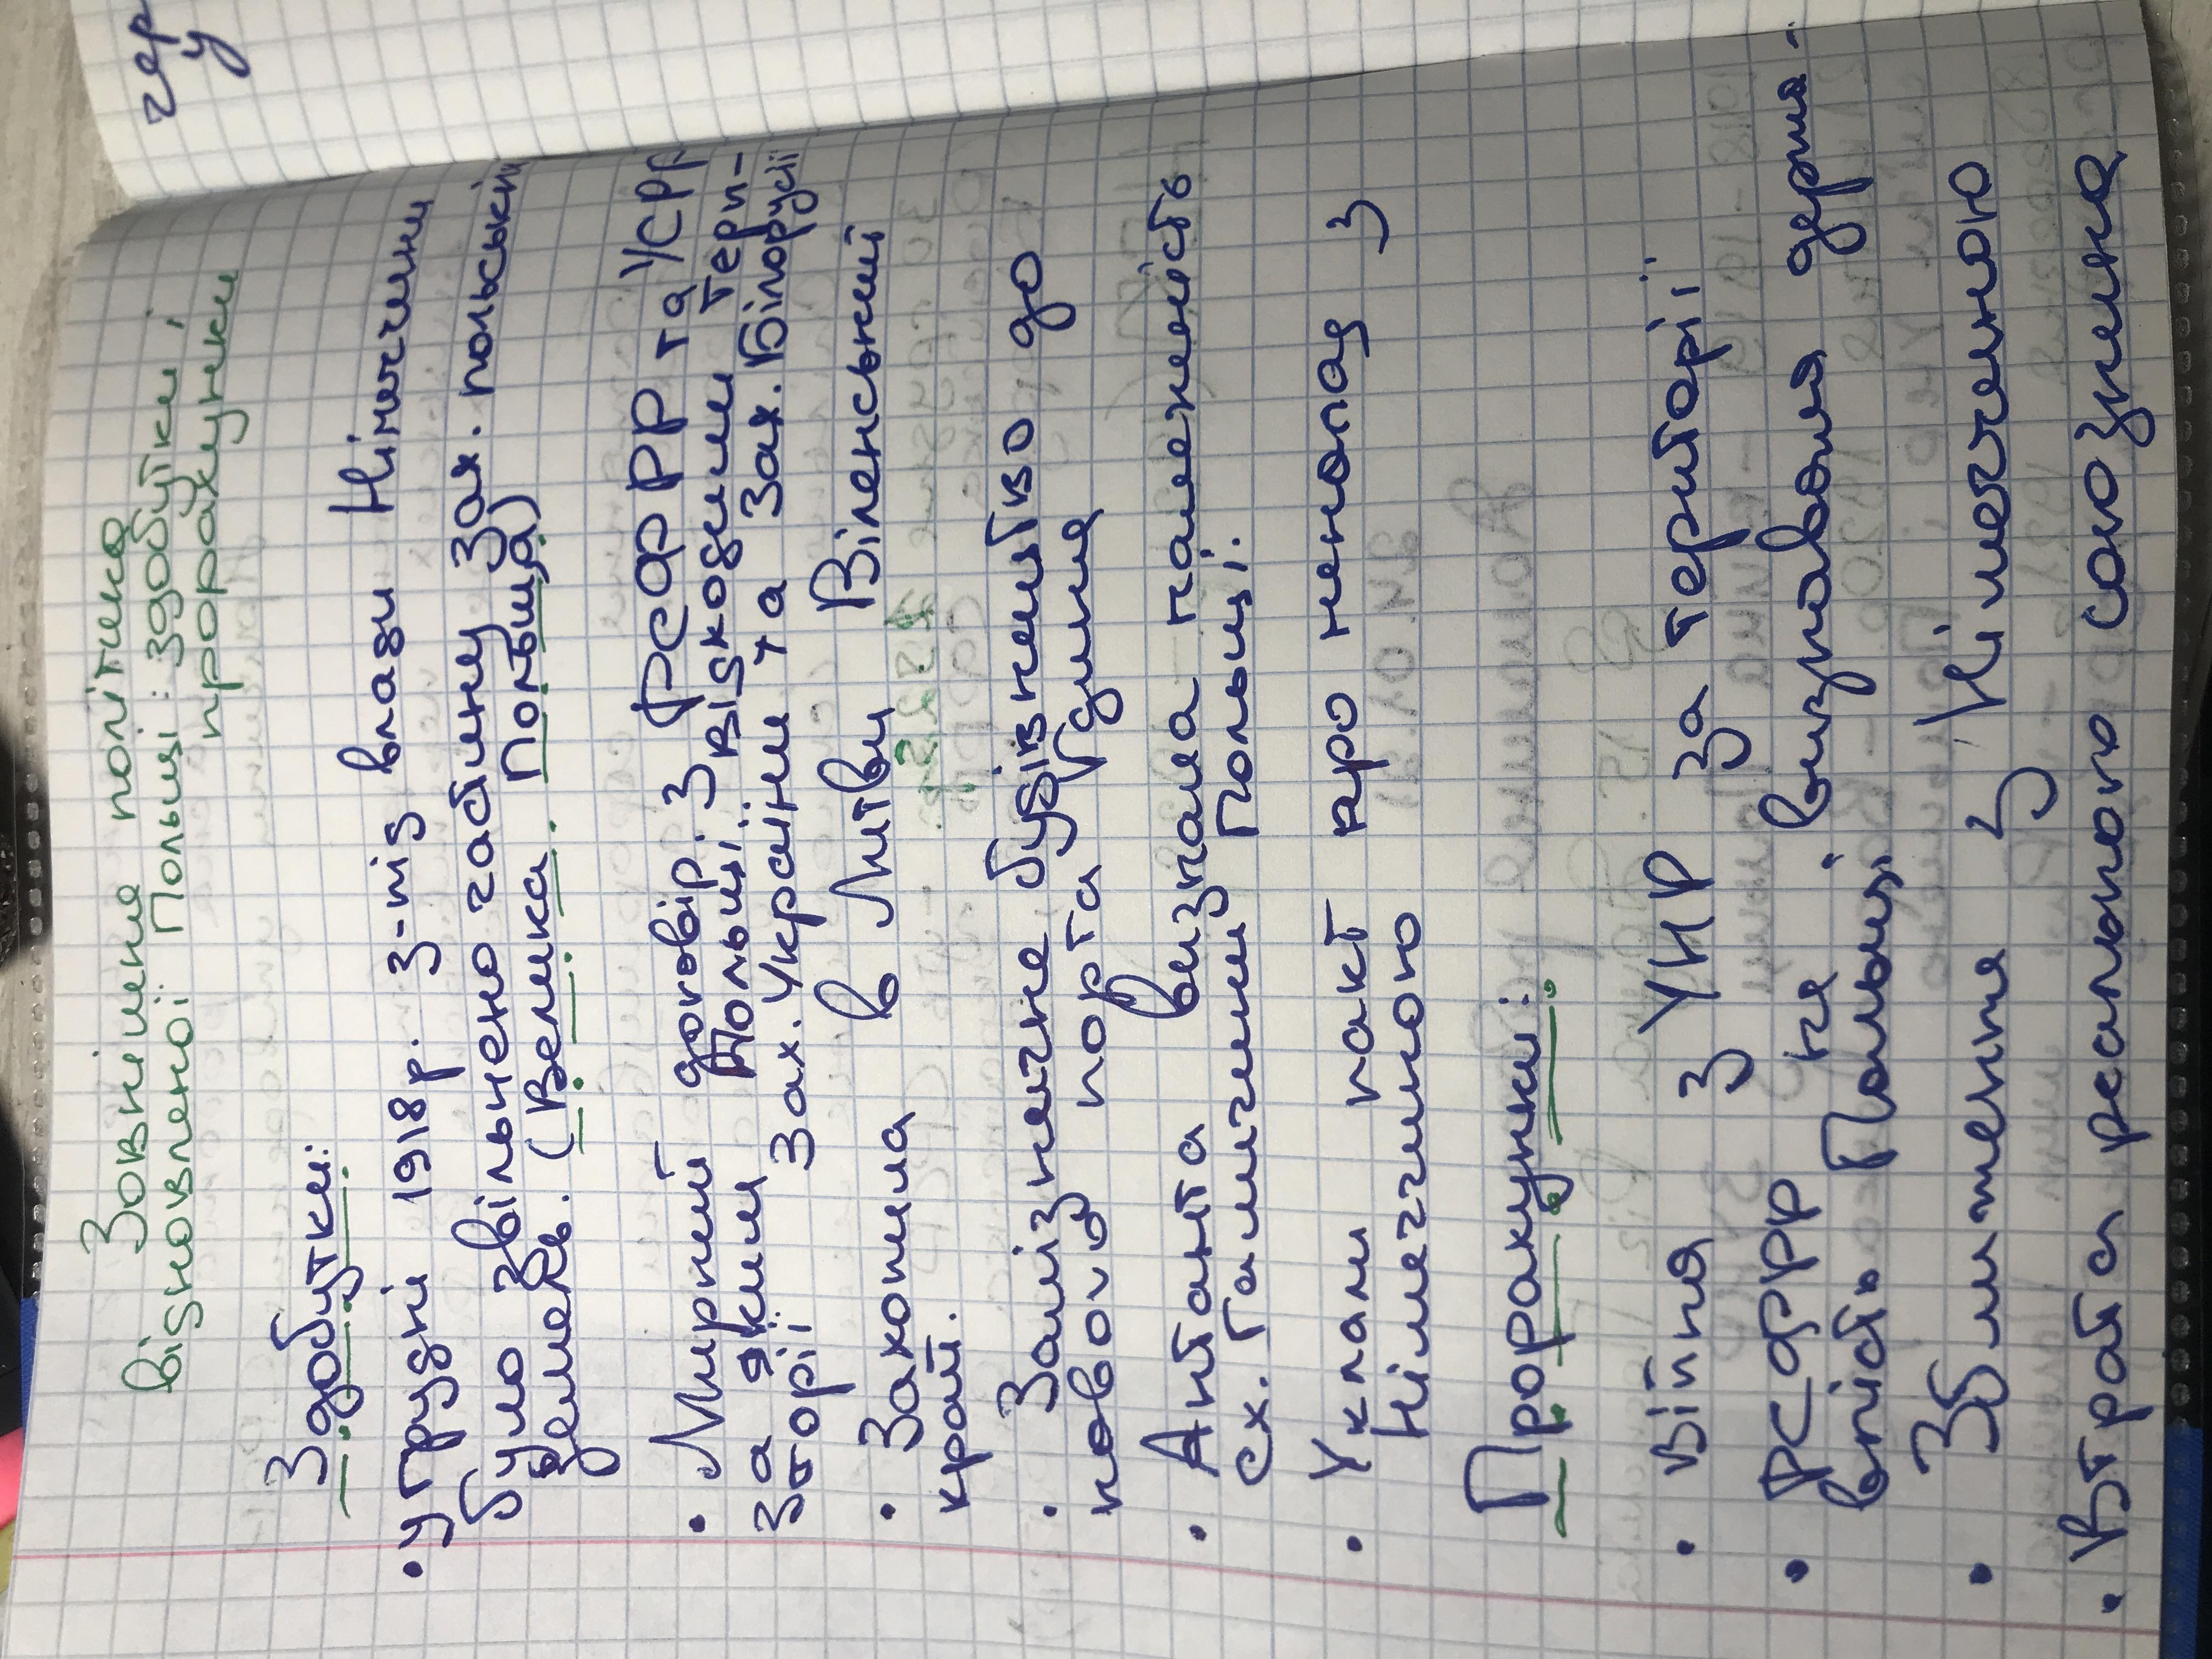 Зовнішня політика
відновленої Польщі: здобутки і
прорахунки
Здобутки:
• у грудні 1918 р. з-під влади Німеччини
було звільнено частину зах. польських
земель. (Велика Польща)
• Мирний договір. З РСФРР та УСРР
за яким Польщі відходили тери-
торії Зах. України та Зах. Білорусії
• Захопила в Литви Віленський
край.
• Залізничне будівництво до
нового порта Гдиня
• Антанта визнала належність
сх. Галичини Польщі.
• Уклали пакт про ненапад з
Німеччиною
Прорахунки:
• Війна з УНР за території
• РСФРР не визнавала держа-
вність Польщі
• Зближення з Німеччиною
• Втрата реального союзника
чер
у